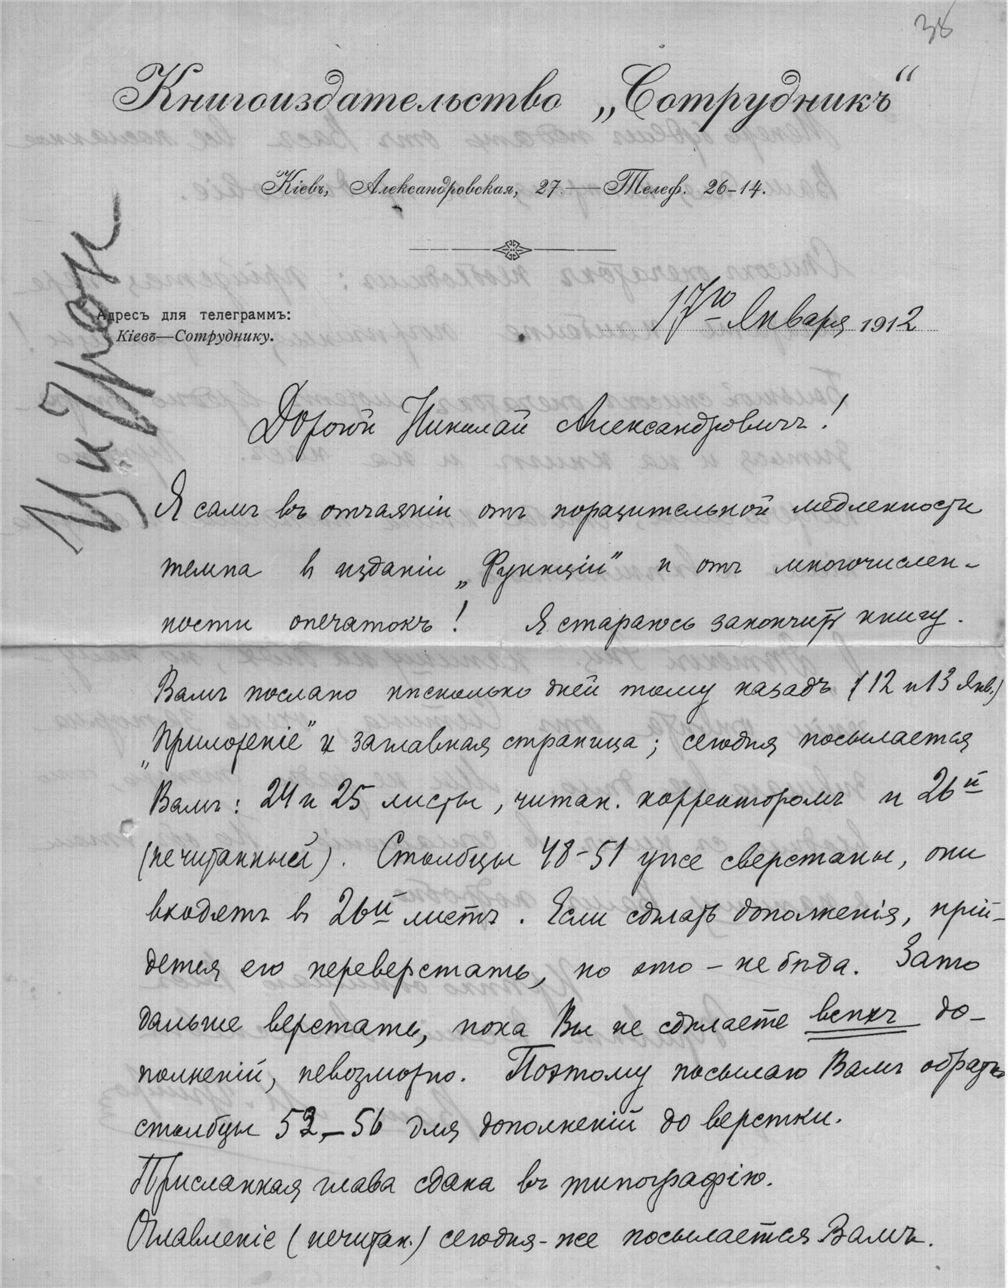 38
Книгоиздательство „Сотрудникъ“
Кіевъ, Александровская, 27 — Телеф. 26-14.
Адресъ для телеграммъ:
Кіевъ—Сотруднику.
17го Января 1912
Дорогой Николай Александровичъ!
Я самъ въ отчаяніи отъ поразительной медленности
темпа в изданіи „Функцій“ и отъ многочислен-
ности опечатокъ! Я стараюсь закончить книгу.
Вамъ послано нѣсколько дней тому назадъ (12 и 13 Янв.)
„Приложеніе“ и заглавная страница; сегодня посылается
Вамъ: 24 и 25 листы, читан. корректоромъ и 26й
(нечитанный). Столбцы 48-51 уже сверстаны, они
входятъ в 26й листъ. Если сдѣлать дополненія, прій-
дется его переверстать, но это – не бѣда. Зато
дальше верстать, пока Вы не сдѣлаете всѣхъ до-
полненій, невозможно. Поэтому посылаю Вамъ обратъ
столбцы 52-56 для дополненій до верстки.
Присланная глава сдана въ типографію.
Оглавленіе (нечитан.) сегодня-же посылается Вамъ.